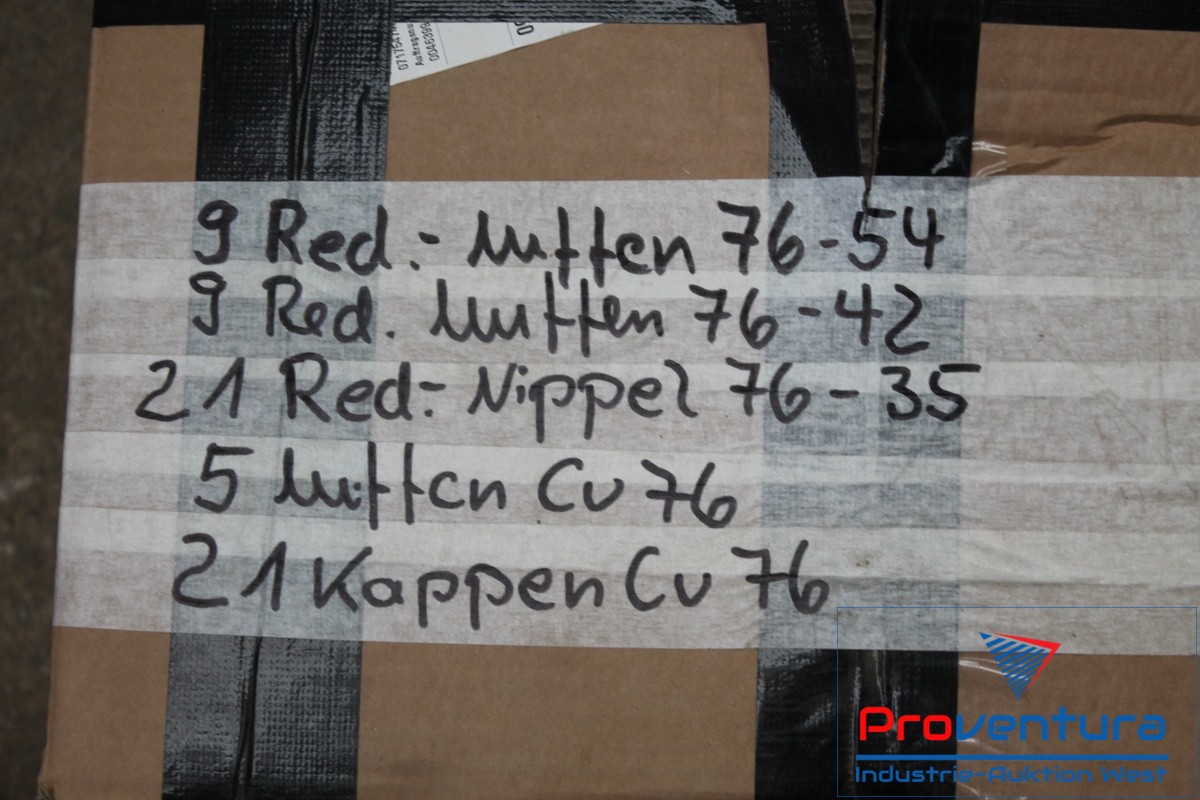 9 Red.- Muffen 76-54
9 Red. Muffen 76-42
21 Red.- Nippel 76-35
5 Muffen Cu 76
21 Kappen Cu 76
Proventura
Industrie-Auktion West